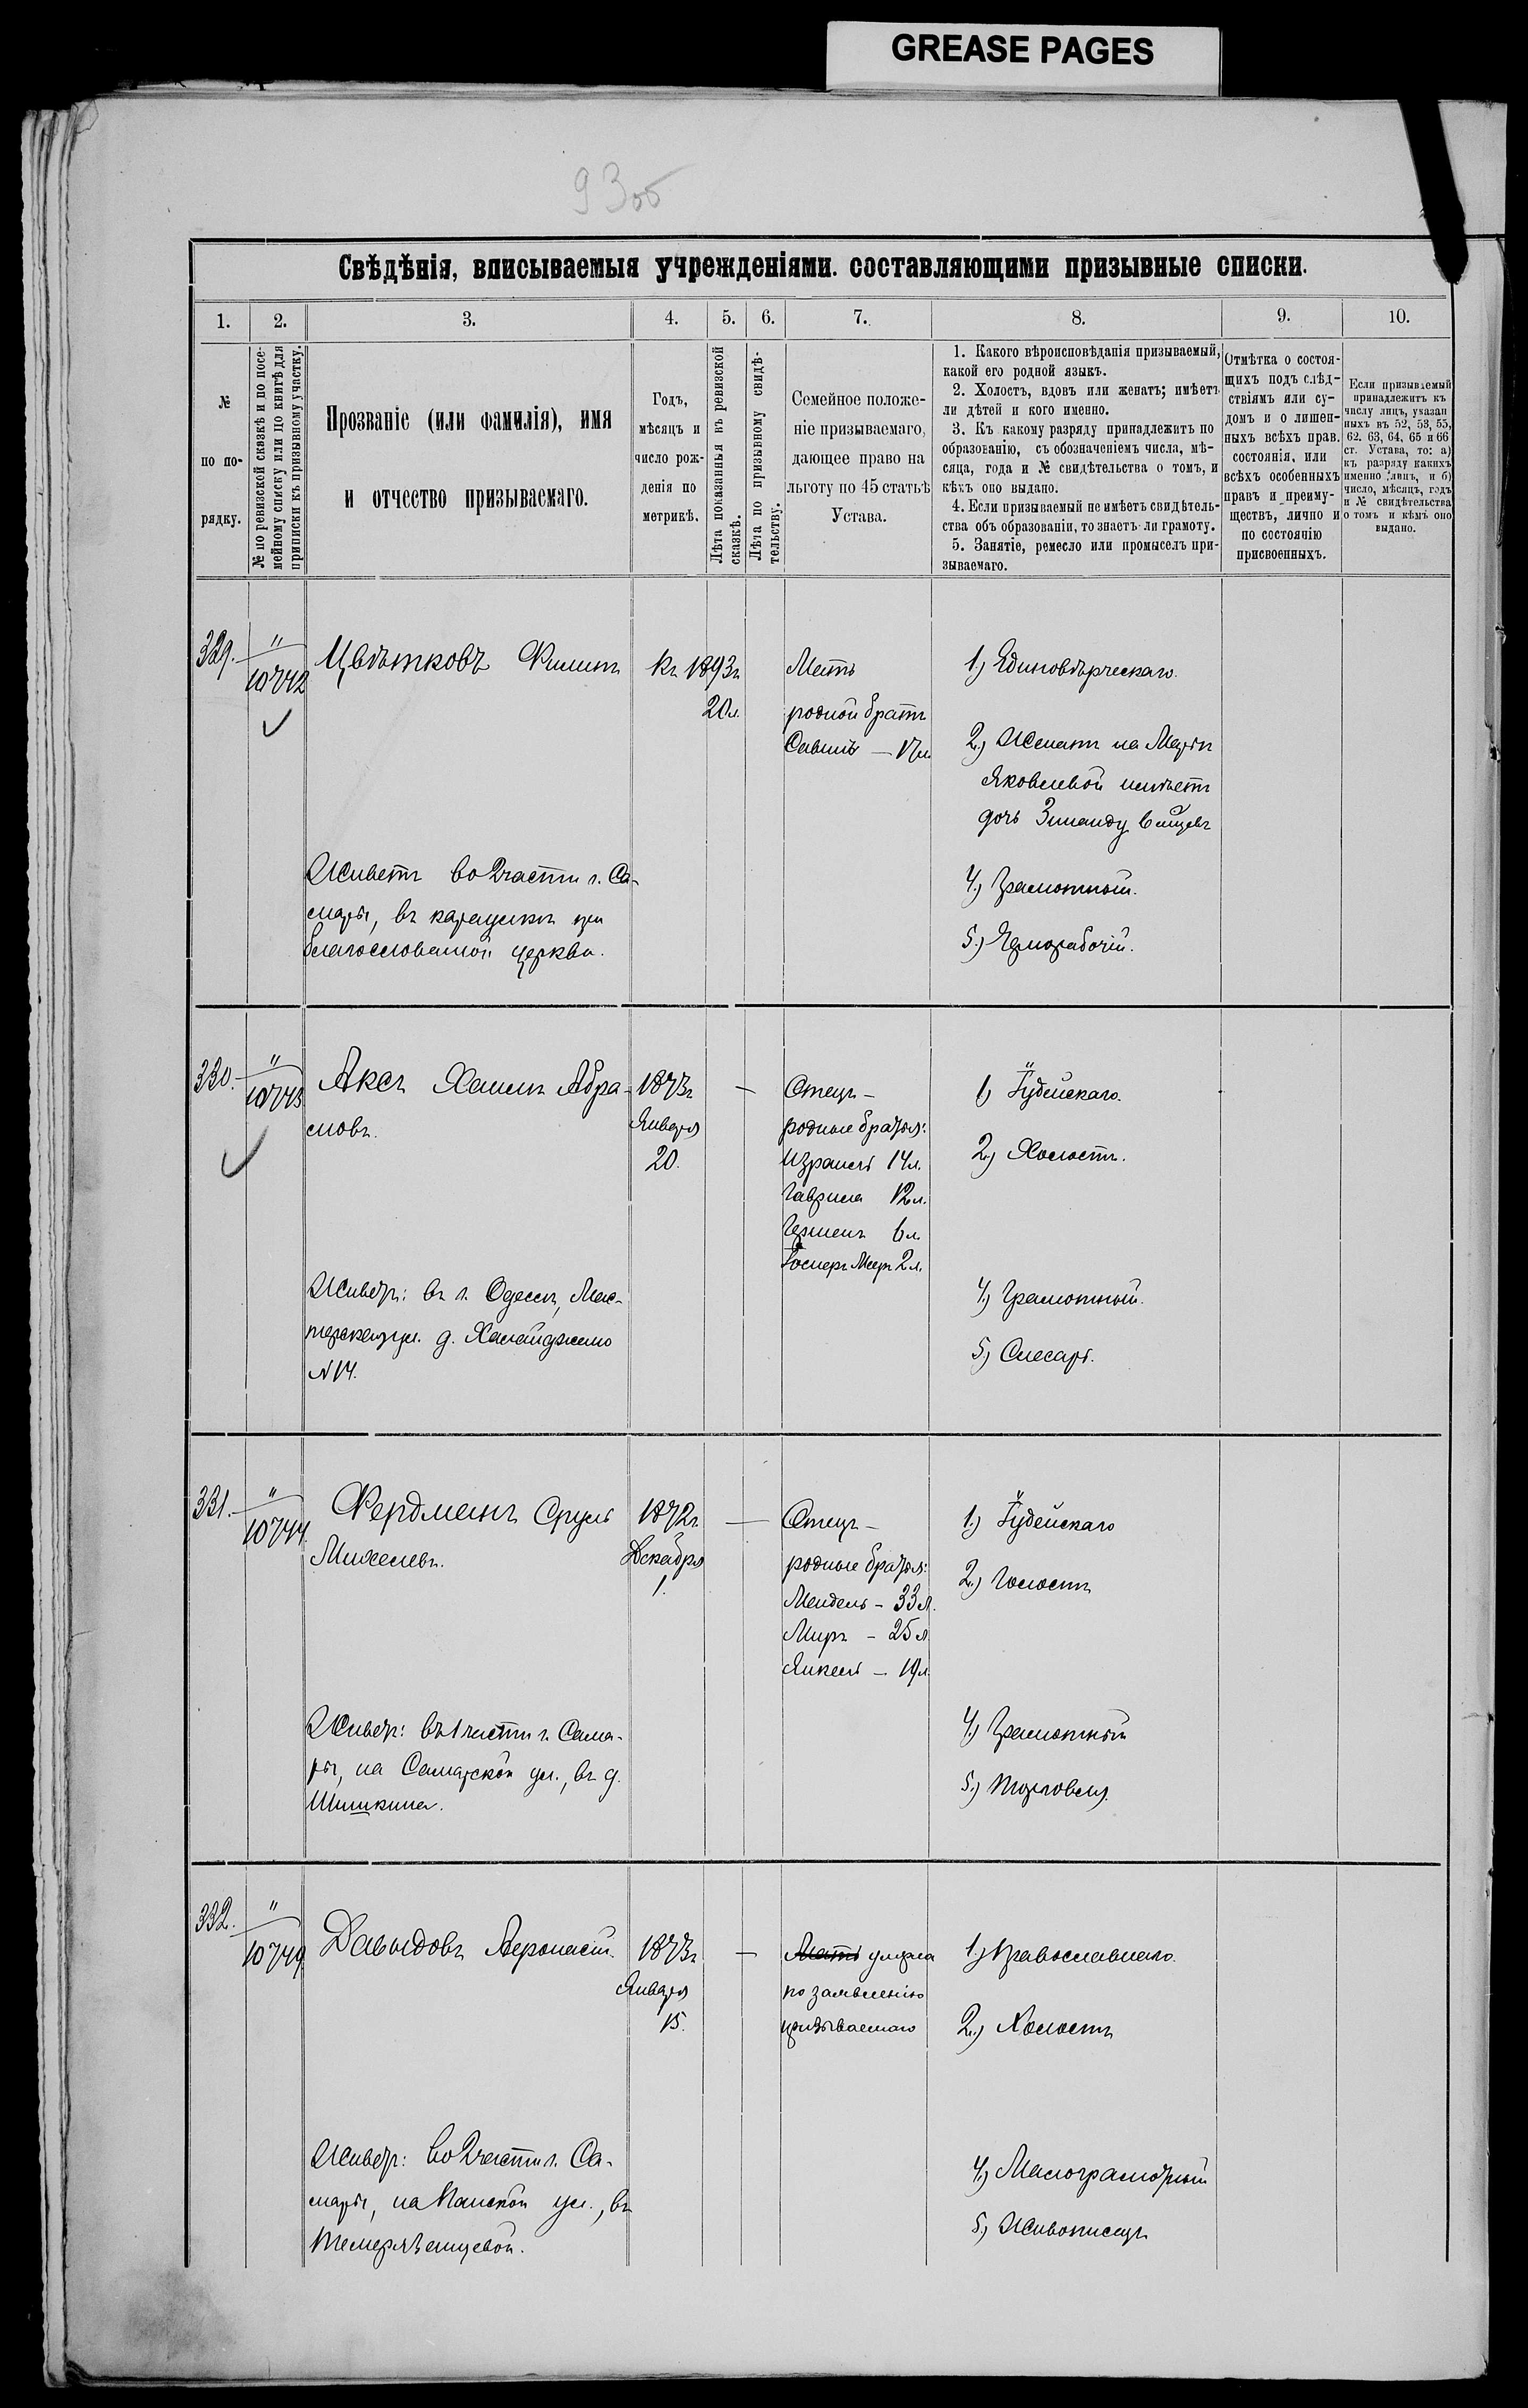 GREASE PAGES
93об
Свѣдѣнія, вписываемыя учрежденіями. составляющими призывные списки.
1. 2. 3. 4. 5. 6. 7. 8. 9. 10.
№
по по-
рядку.
№ по ревизской сказкѣ и по посе-
мейному списку или по книгѣ для
приписки къ призывному участку.
Прозваніе (или фамилія), имя
и отчество призываемаго.
Годъ,
мѣсяцъ и
число рож-
денія по
метрикѣ.
Лѣта показанныя въ ревизской
сказкѣ.
Лѣта по призывному свидѣ-
тельству.
Семейное положе-
ніе призываемаго,
дающее право на
льготу по 45 статьѣ
Устава.
1. Какого вѣроисповѣданія призываемый,
какой его родной языкъ.
2. Холостъ, вдовъ или женатъ; имѣетъ
ли дѣтей и кого именно.
3. Къ какому разряду принадлежитъ по
образованію, съ обозначеніемъ числа, мѣ-
сяца, года и № свидѣтельства о томъ, и
кѣмъ оно выдано.
4. Если призываемый не имѣетъ свидѣтель-
ства объ образованіи, то знаетъ ли грамоту.
5. Занятіе, ремесло или промыселъ при-
зываемаго.
Отмѣтка о состоя-
щихъ подъ слѣд-
ствіямъ или су-
домъ и о лишен-
ныхъ всѣхъ прав.
состоянія, или
всѣхъ особенныхъ
правъ и преиму-
ществъ, лично и
по состоянію
присвоенныхъ.
Если призываемый
принадлежитъ къ
числу лицъ, указан
ныхъ въ 52, 53, 55,
62. 63, 64. 65 и 66
ст. Устава, то: а)
къ разряду какихъ
именно лицъ, и б)
число, мѣсяцъ, годъ
и № свидѣтельства
о томъ и кѣмъ оно
выдано.
329. " 10742 Цвѣтковъ Филипъ Къ 1893г. 20л.
Мать
родной братъ
Савелій — 17л.
1.) Единовѣрческаго.
2.) Женатъ на
Яковлевой имѣетъ
дочь
4.) Грамотный.
5.) Чернорабочій.
Живетъ во 2 части г. Са-
мары, въ караулкѣ при
благословенной церкви.
330. " 10743 Аксъ Хаимъ Абра-
мовъ.
1873г.
Января
20.
—
Отецъ —
родные братья:
Израиль 14л.
Гаврила 12л.
6л.
2л.
1) Іудейскаго.
2.) Холостъ.
4.) Грамотный.
5.) Слесарь.
Живетъ: въ г. Одессѣ,
д.
№ 14.
331. " 10744 Фердманъ Сруль
Михелевъ.
1872г.
Декабря
1.
—
Отецъ —
родные братья:
Мендель — 33л.
Меръ — 25л.
Янкель — 19л.
1.) Іудейскаго
2.) Холостъ
4.) Грамотный
5.) Торговля.
Живетъ: въ 1 части г. Сама-
ры, на Самарской ул., въ д.
Шишкина.
332. " 10749 Давыдовъ
1873г.
Января
15.
—
Мать умерла
по заявленію
призываемаго
1.) Православнаго.
2.) Холостъ
4.) Малограмотный
5.) Живописецъ
Живетъ: во 2 части г. Са-
мары, на Панской ул., въ